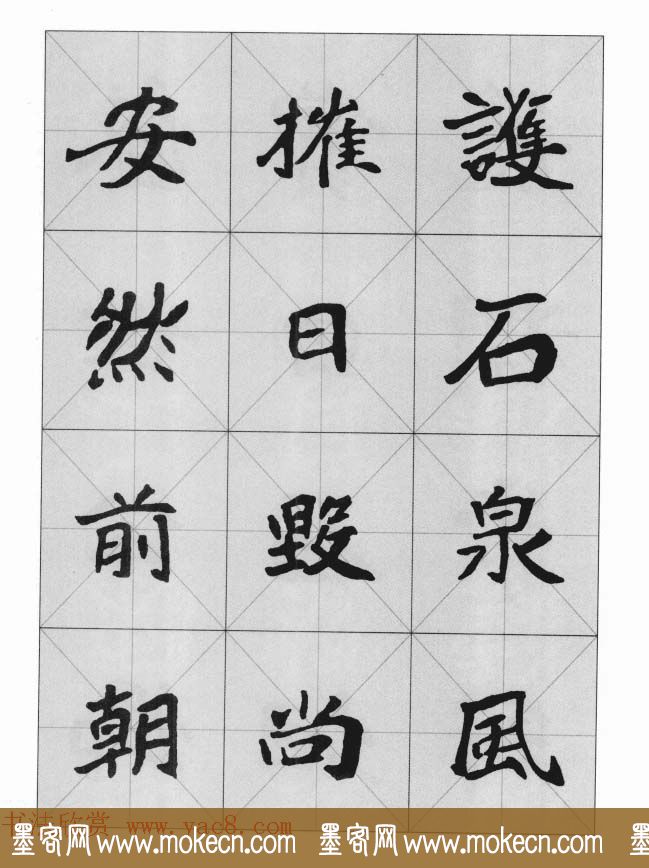 護石泉風
摧日毀尚
安然前朝
书法欣赏 www.yac8.com
墨客网 www.mokecn.com 墨客网 www.mokecn.com 墨客网 www.mokecn.com